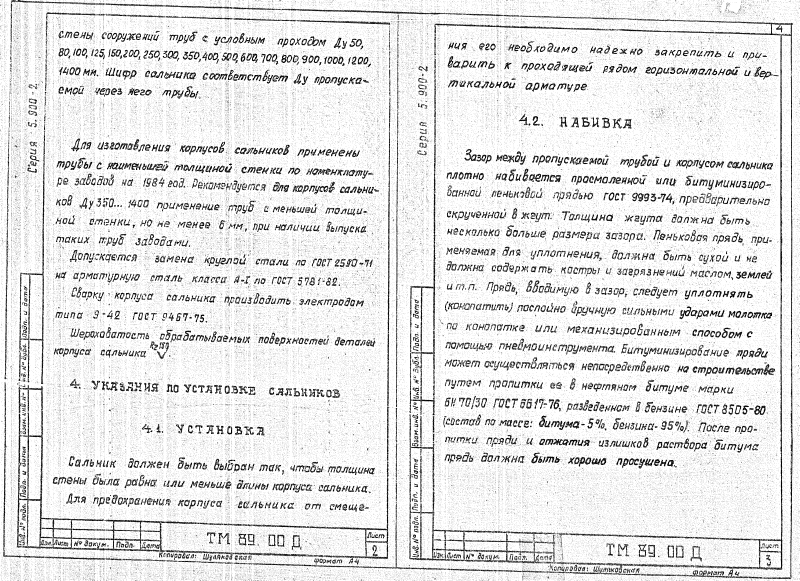 стены сооружений труб с условным проходом Ду 50,
80,100,125,150,200,250,300,350,400,500,600,700,800,900,1000,1200,
1400 мм. Шифр сальника соответствует Ду пропуска-
емой через него трубы.
Для изготовления корпусов сальников применены
трубы с наименьшей толщиной стенки по номенклату-
ре заводов на 1984 год. Рекомендуется для корпусов сальни-
ков Ду 350...1400 применение труб с меньшей толщи-
ной стенки, но не менее 6 мм, при наличии выпуска
таких труб заводами.
Допускается замена круглой стали по ГОСТ 2590-71
на арматурную сталь класса А-I по ГОСТ 5781-82.
Сварку корпуса сальника производить электродом
типа Э-42 ГОСТ 9467-75.
Шероховатость обрабатываемых поверхностей деталей
корпуса сальника
4. УКАЗАНИЯ ПО УСТАНОВКЕ САЛЬНИКОВ
4.1. УСТАНОВКА
Сальник должен быть выбран так, чтобы толщина
стены была равна или меньше длины корпуса сальника.
Для предохранения корпуса сальника от смеще-
Серия 5.900-2
Инв. № подл. Подп. и дата Взам. инв. № Инв. № дубл. Подп. и дата
Изм. Лист № докум. Подп. Дата
ТМ 89.00 Д
Лист
2
Копировал: Шутковская
Формат А4
4
ния его необходимо надежно закрепить и при-
варить к проходящей рядом горизонтальной и вер-
тикальной арматуре
4.2. НАБИВКА
Зазор между пропускаемой трубой и корпусом сальника
плотно набивается просмоленной или битуминизиро-
ванной пеньковой прядью ГОСТ 9993-74, предварительно
скрученной в жгут. Толщина жгута должна быть
несколько больше размера зазора. Пеньковая прядь, при-
меняемая для уплотнения, должна быть сухой и не
должна содержать костры и загрязнений маслом, землей
и т.п. Прядь, вводимую в зазор, следует уплотнять
(конопатить) послойно вручную сильными ударами молотка
по конопатке или механизированным способом с
помощью пневмоинструмента. Битуминизирование пряди
может осуществляться непосредственно на строительстве
путем пропитки ее в нефтяном битуме марки
БН 70/30 ГОСТ 6617-76, разведенном в бензине ГОСТ 8505-80
(состав по массе: битума-5%, бензина-95%). После про-
питки пряди и отжатия излишков раствора битума
прядь должна быть хорошо просушена.
Серия 5.900-2
Инв. № подл. Подп. и дата Взам. инв. № Инв. № дубл. Подп. и дата
Изм. Лист № докум. Подп. Дата
ТМ 89.00 Д
Лист
3
Копировал: Шутковская
Формат А4